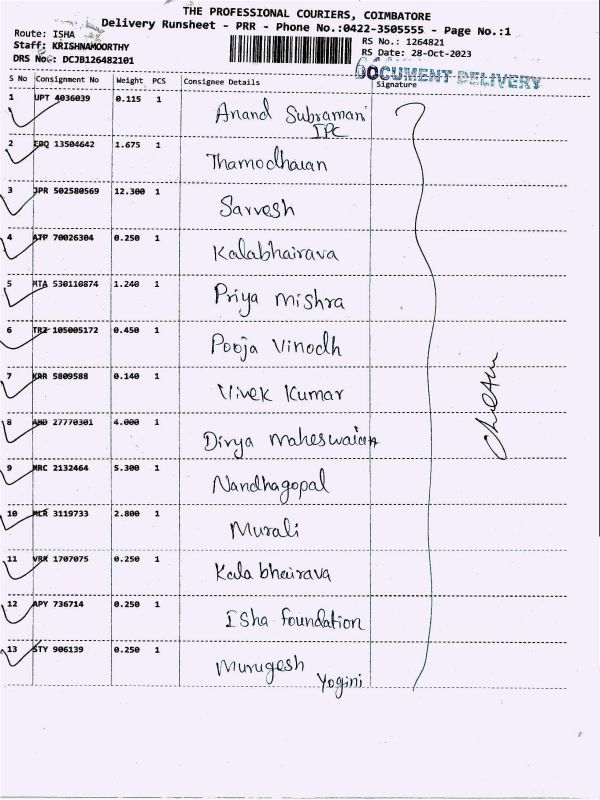 THE PROFESSIONAL COURIERS, COIMBATORE
Delivery Runsheet - PRR - Phone No.:0422-3505555 - Page No.:1
Route: ISHA
RS No.: 1264821
Staff: KRISHNAMOORTHY
RS Date: 28-Oct-2023
DRS No.: DCJB126482101
DOCUMENT DELIVERY
S No Consignment No Weight PCS Consignee Details Signature
1 UPT 4036039 0.115 1 Anand Subramani
IPC
2 EBQ 13504642 1.675 1 Thamodharan
3 JPR 502580569 12.300 1 Sarvesh
4 ATP 70026304 0.250 1 Kalabhairava
5 MTA 530110874 1.240 1 Priya Mishra
6 TRZ 105005172 0.450 1 Pooja Vinodh
7 KRR 5809588 0.140 1 Vivek Kumar
8 AMD 27770301 4.000 1 Divya Maheswaran
9 MRC 2132464 5.300 1 Nandhagopal
10 MLR 3119733 2.800 1 Murali
11 VRK 1707075 0.250 1 Kala bhairava
12 APY 736714 0.250 1 Isha Foundation
13 STY 906139 0.250 1 Murugesh
Yogini